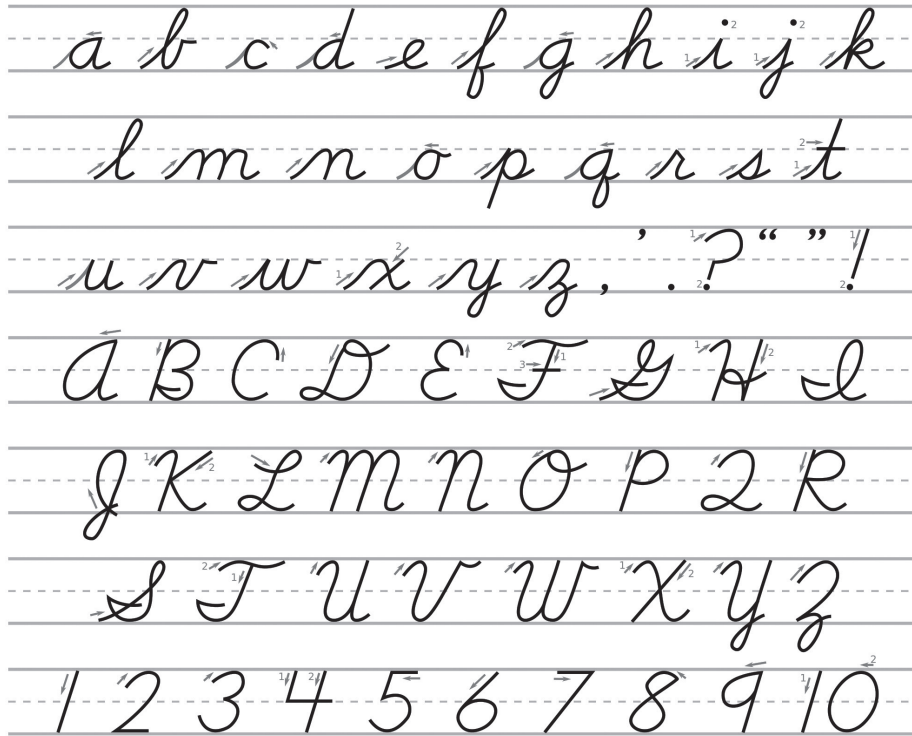 a b c d e f g h i j k
l m n o p q r s t
u v w x y z , ’ . ? “ ” !
A B C D E F G H I
J K L M N O P Q R
S T U V W X Y Z
1 2 3 4 5 6 7 8 9 10